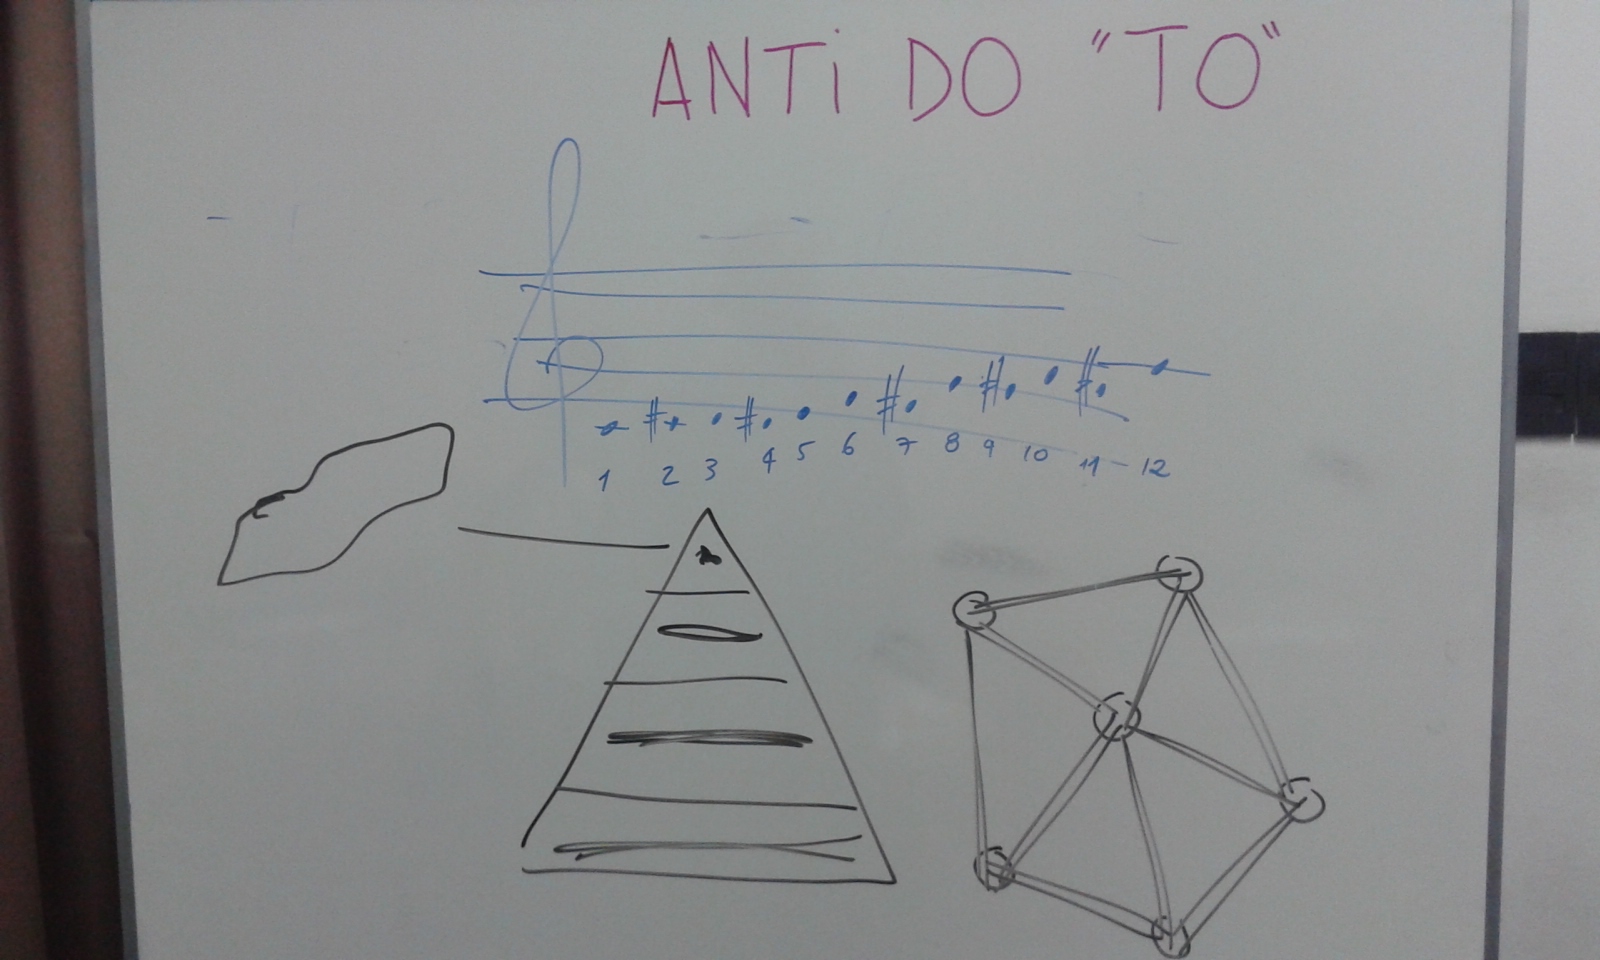 ANTi DO "TO"
# # # # #
1 2 3 4 5 6 7 8 9 10 11 - 12